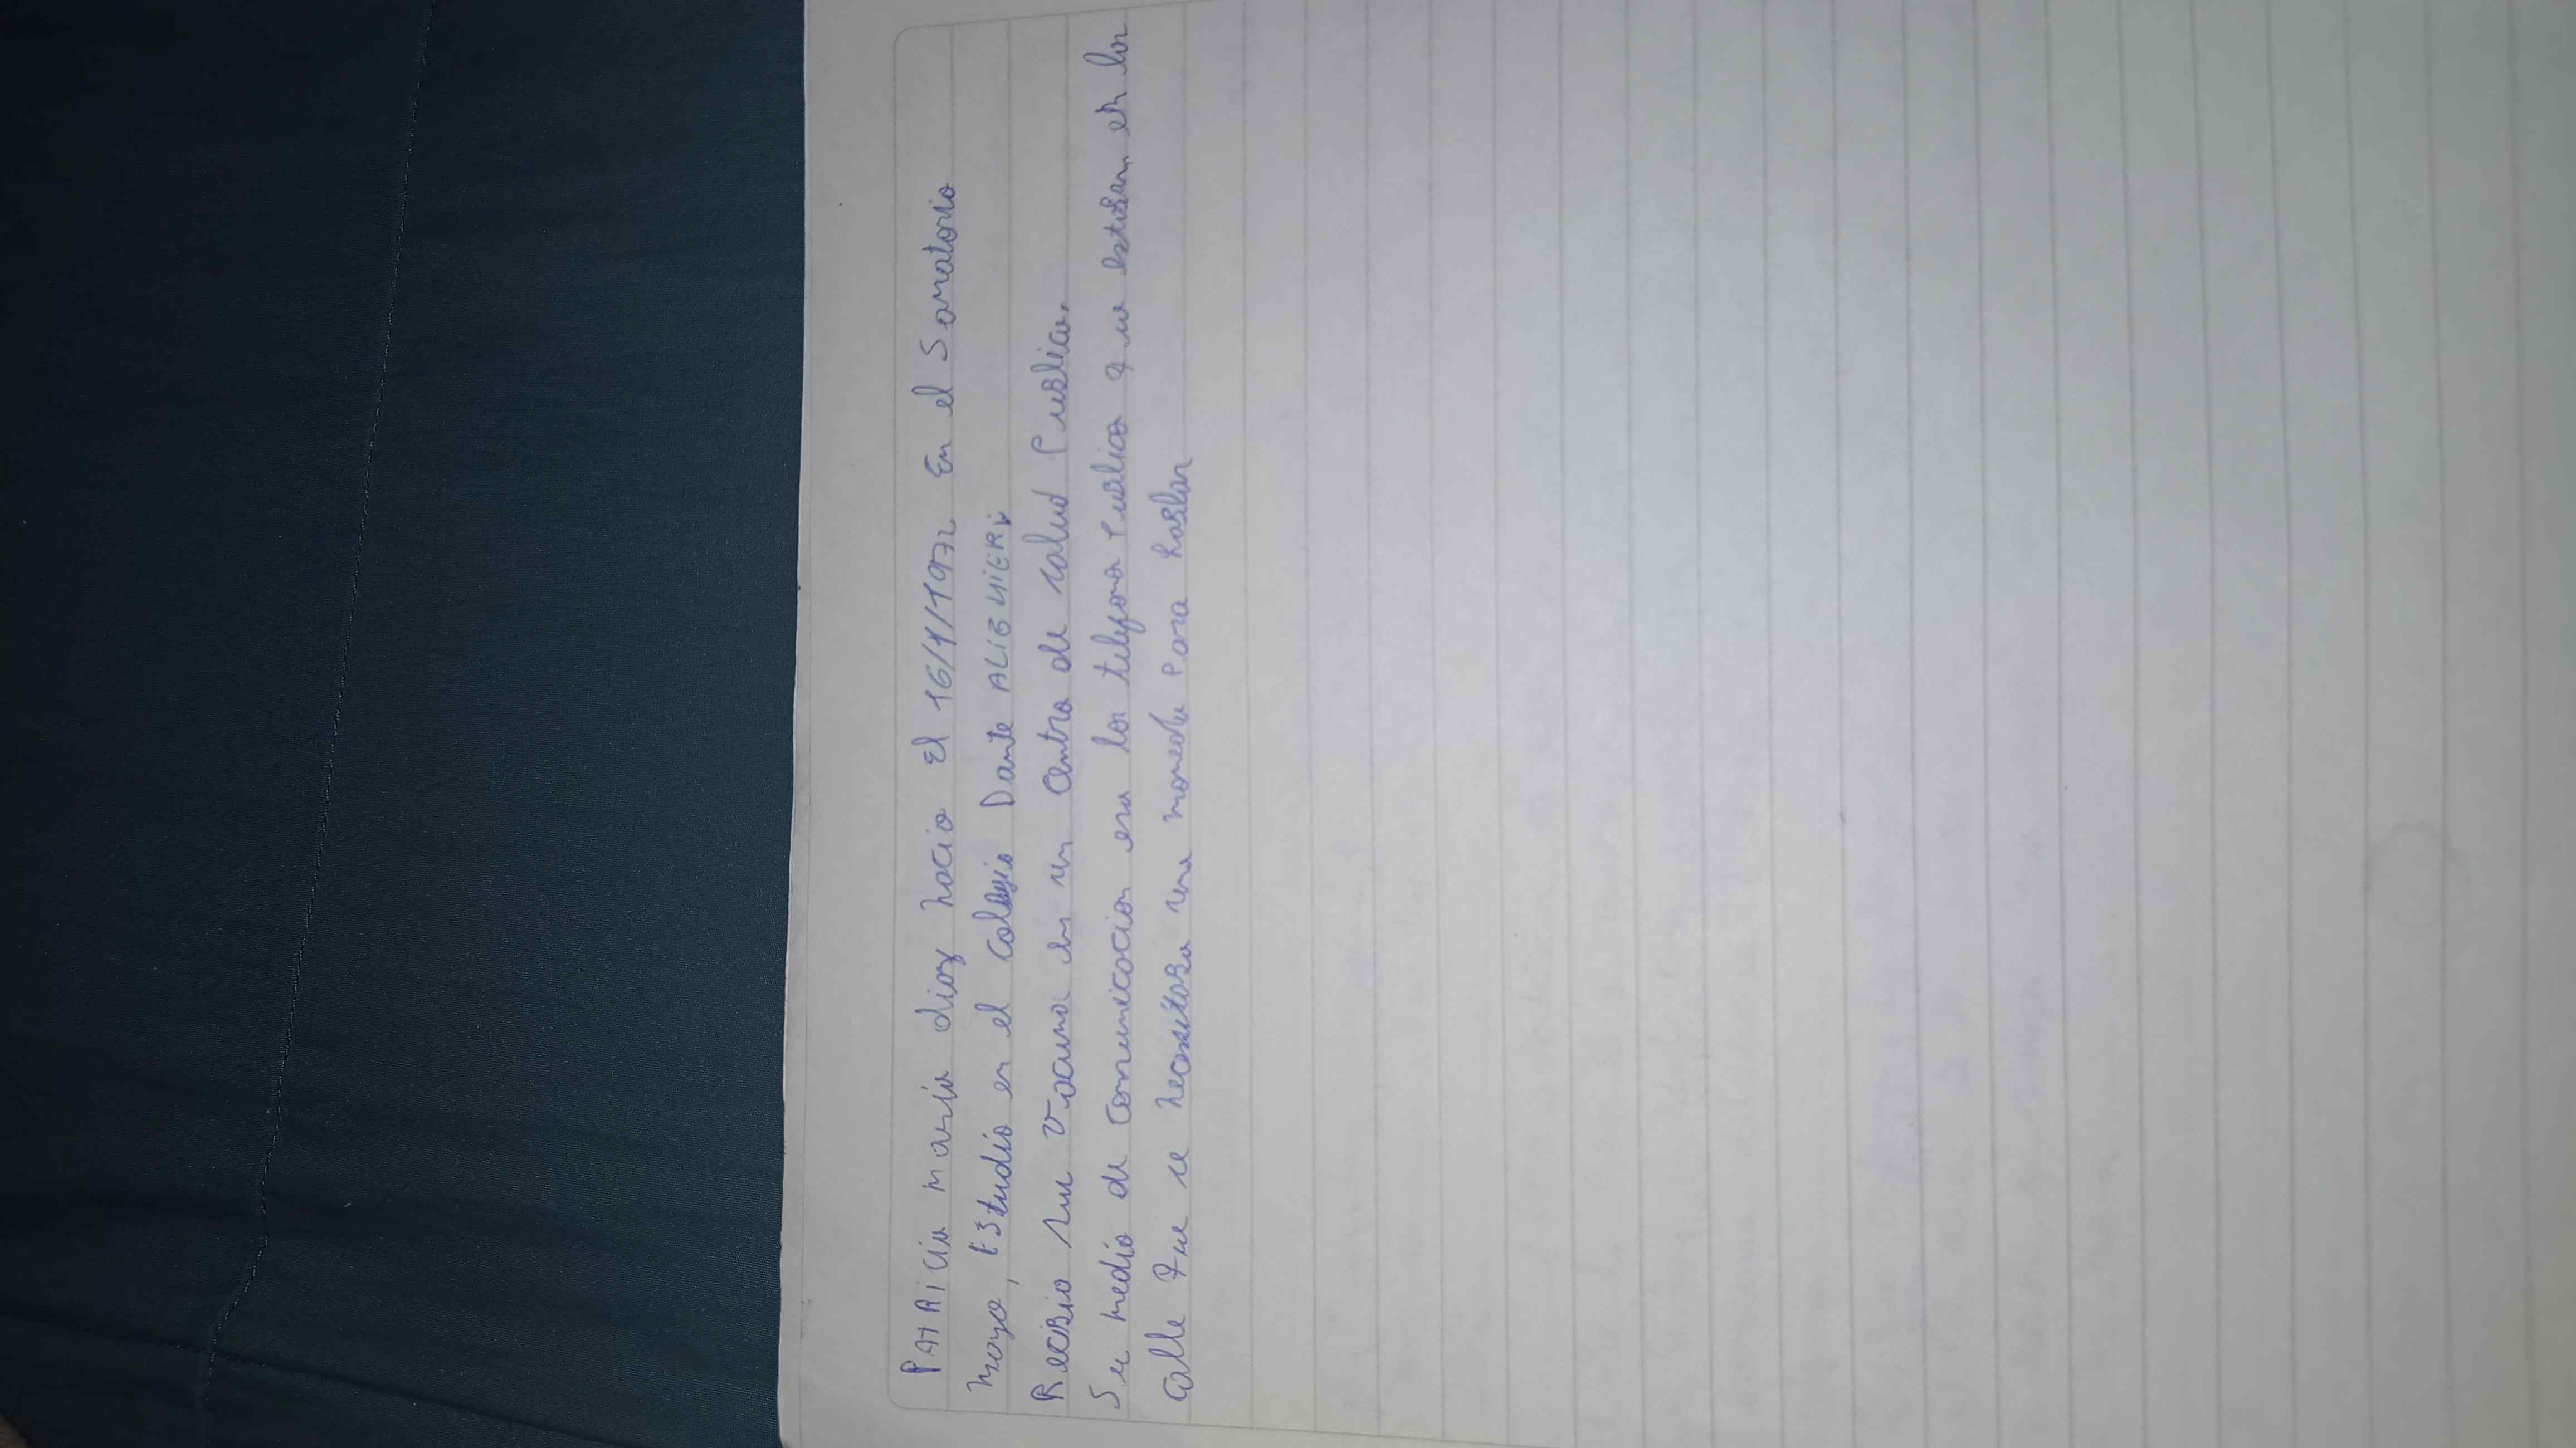 PAtRiCia maría diaz nacio El 16/4/1972 En el Sanatorio
mayo, EStudio en el Colegio Dante ALIGHiERi
Recibio su vacuna en un Centro de salud Publica.
Su medio de Comunicacion era los telefono Publico que estaban en la
Calle que se necesitaba una moneda Para hablar